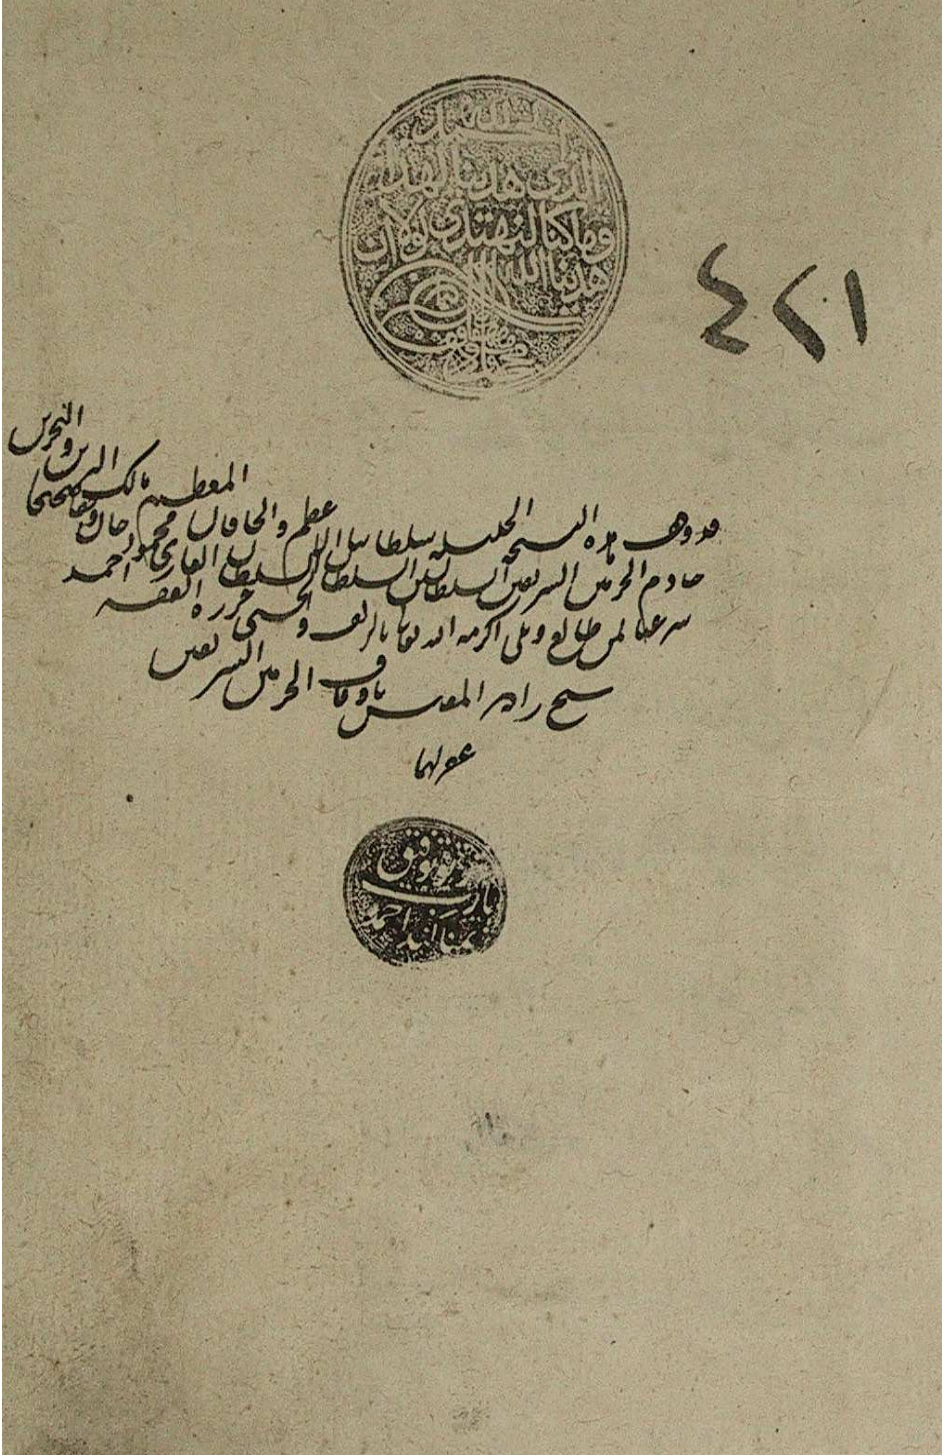 الحمد لله
الذي هدينا لهذا
وما كنا لنهتدي لولا ان
هدينا الله
٤٢١
قد وقف هذه النسخة الجليلة سلطاننا الاعظم والخاقان المعظم مالك البرين والبحرين
خادم الحرمين الشريفين السلطان بن السلطان السلطان الغازي محمود خان وقفا صحيحا
شرعيا لمن طالع وتملى اكرمه الله تعالى بالزلف والحسنى حرره الفقير احمد
شيخ زاده المفتش باوقاف الحرمين الشريفين
غفر لهما
توفيق
يارب
احمد